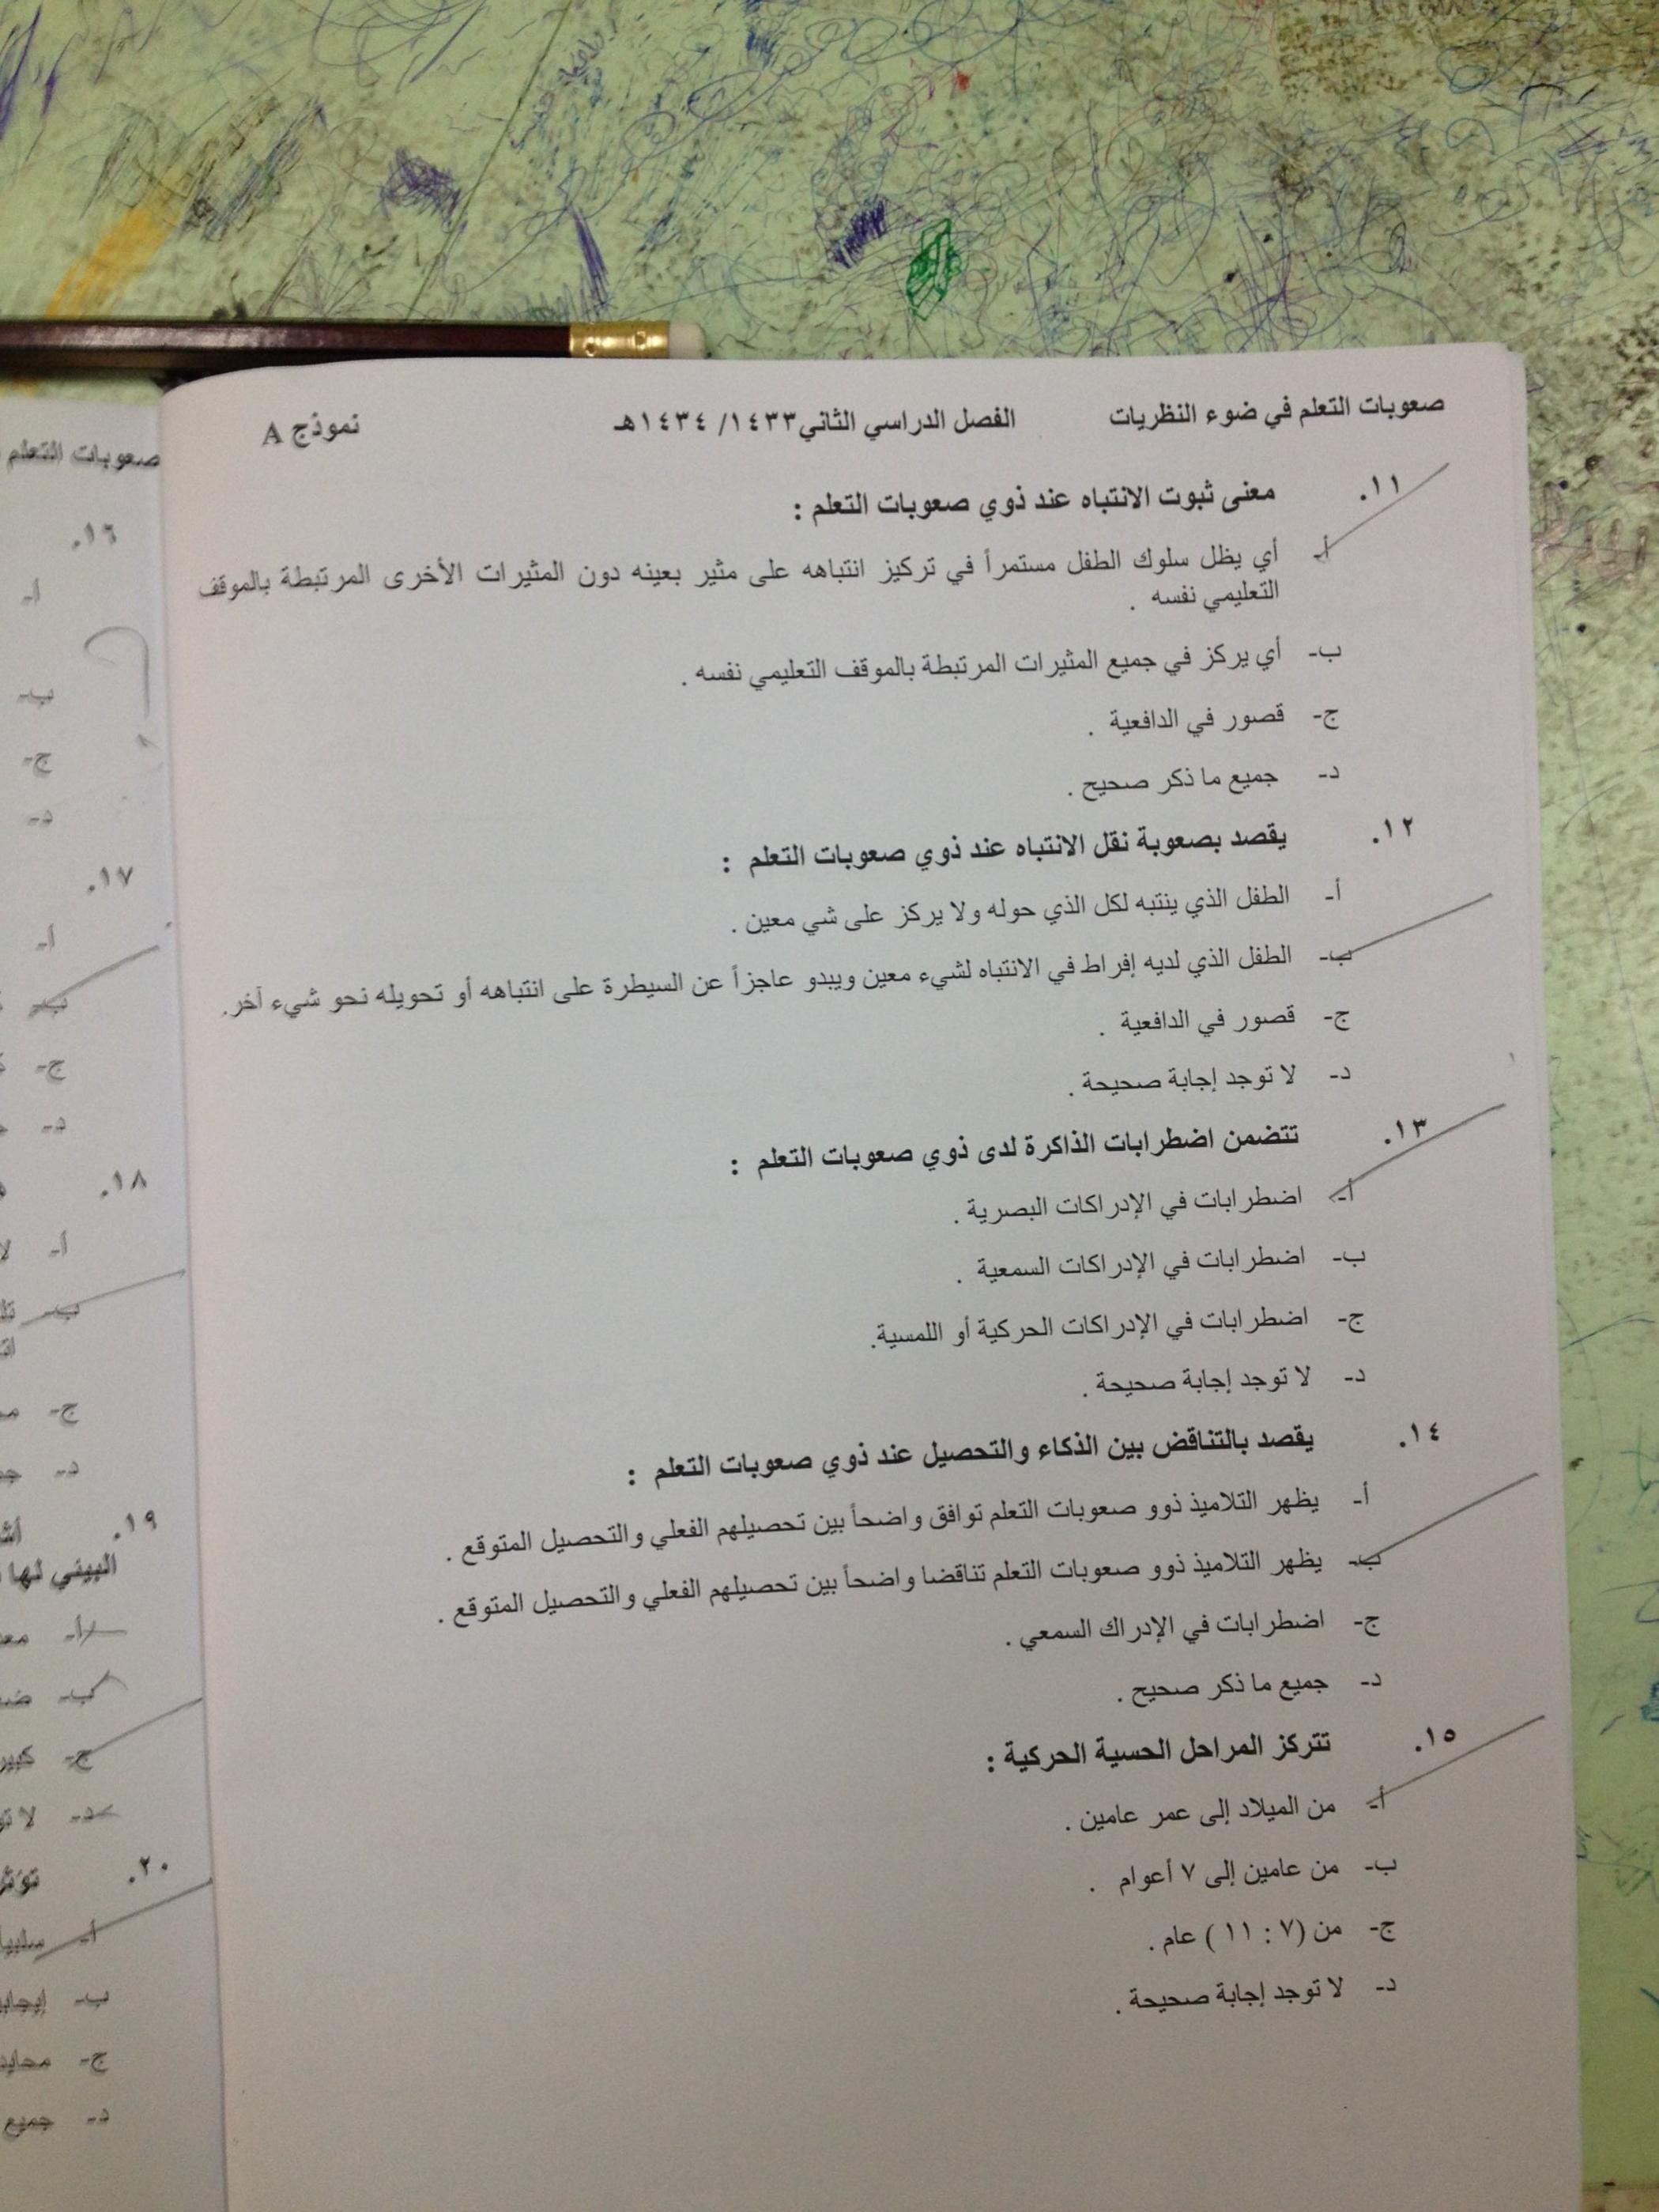 صعوبات التعلم في ضوء النظريات الفصل الدراسي الثاني ١٤٣٣/ ١٤٣٤هـ نموذج A
١١. معنى ثبوت الانتباه عند ذوي صعوبات التعلم :
أ- أي يظل سلوك الطفل مستمراً في تركيز انتباهه على مثير بعينه دون المثيرات الأخرى المرتبطة بالموقف
التعليمي نفسه .
ب- أي يركز في جميع المثيرات المرتبطة بالموقف التعليمي نفسه .
ج- قصور في الدافعية .
د- جميع ما ذكر صحيح .
١٢. يقصد بصعوبة نقل الانتباه عند ذوي صعوبات التعلم :
أ- الطفل الذي ينتبه لكل الذي حوله ولا يركز على شي معين .
ب- الطفل الذي لديه إفراط في الانتباه لشيء معين ويبدو عاجزاً عن السيطرة على انتباهه أو تحويله نحو شيء آخر.
ج- قصور في الدافعية .
د- لا توجد إجابة صحيحة .
١٣. تتضمن اضطرابات الذاكرة لدى ذوي صعوبات التعلم :
أ- اضطرابات في الإدراكات البصرية .
ب- اضطرابات في الإدراكات السمعية .
ج- اضطرابات في الإدراكات الحركية أو اللمسية.
د- لا توجد إجابة صحيحة .
١٤. يقصد بالتناقض بين الذكاء والتحصيل عند ذوي صعوبات التعلم :
أ- يظهر التلاميذ ذوو صعوبات التعلم توافق واضحاً بين تحصيلهم الفعلي والتحصيل المتوقع .
ب- يظهر التلاميذ ذوو صعوبات التعلم تناقضا واضحاً بين تحصيلهم الفعلي والتحصيل المتوقع .
ج- اضطرابات في الإدراك السمعي .
د- جميع ما ذكر صحيح .
١٥. تتركز المراحل الحسية الحركية :
أ- من الميلاد إلى عمر عامين .
ب- من عامين إلى ٧ أعوام .
ج- من (٧ : ١١ ) عام .
د- لا توجد إجابة صحيحة .
صعوبات التعلم
١٦.
أ-
ب-
ج-
د-
١٧.
أ-
ب-
ج-
د-
١٨.
أ- لا
ب-
ج-
د-
١٩.
البيئي لها
أ-
ب-
ج-
د- لا
٢٠.
أ-
ب-
ج-
د- جميع